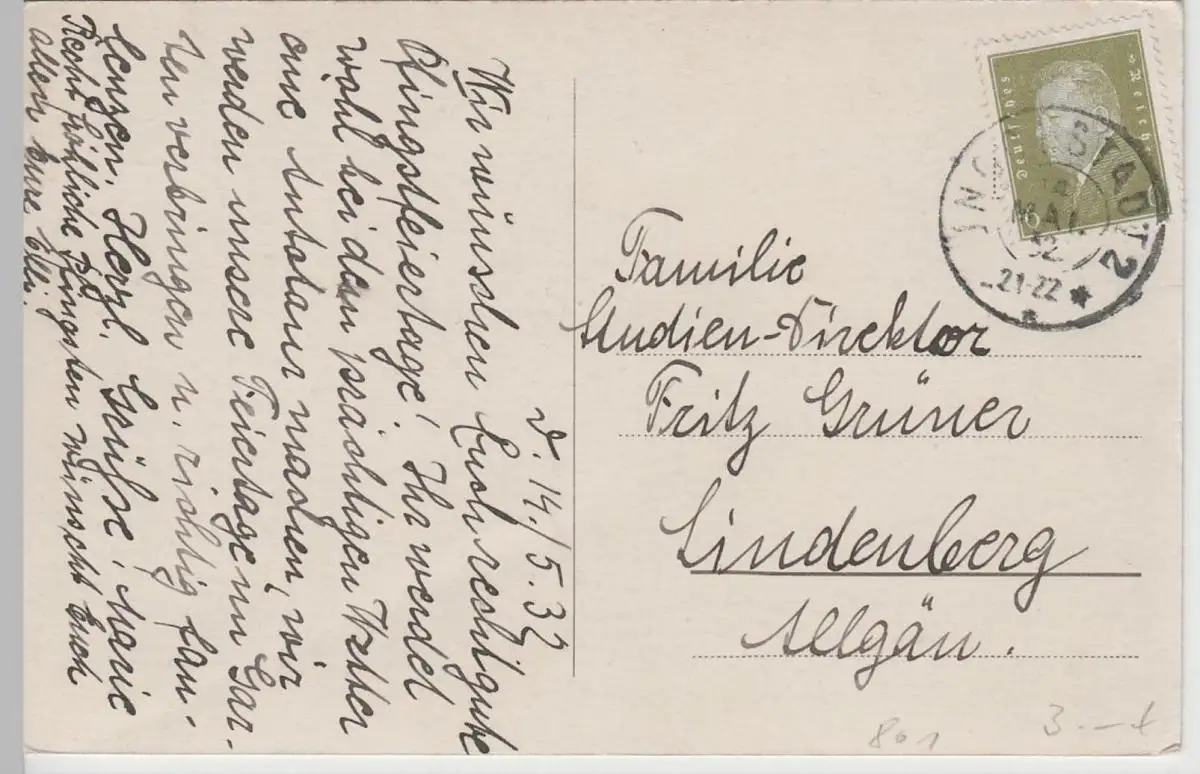 d. 14./5.32
Wir wünschen Euch recht gute
Pfingstfeiertage! Ihr werdet
wohl bei dem prächtigen Wetter
eine Autotour machen, wir
werden unsere Feiertage im Gar-
ten verbringen u. richtig fau-
lenzen. Herzl. Grüße! Marie
Recht fröhliche Pfingsten wünscht Euch
allen Eure Elli.
Deutsches Reich
6
INGOLSTADT 2
MAI
32
21-22
Familie
Studien-Direktor
Fritz Grüner
Lindenberg
Allgäu.
801
3.-